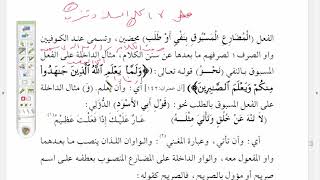 الفعل (المُضَارِع المَسْبُوق بِنَفْي أَوْ طَلَب) محضين، وتسمى عند الكوفيين
واو الصرف؛ لصرفهم ما بعدها عن سَنن الكلام، مثال الداخلة على الفعل
المسبوق بالنفي (نَحْوُ) قوله تعالى: (﴿وَلَمَّا يَعْلَمِ اللَّهُ الَّذِينَ جَاهَدُوا
مِنكُمْ وَيَعْلَمَ الصَّابِرِينَ﴾) [آل عمران: ١٤٢] أي: وأن يعلم، (وَ) مثال الداخلة على
الفعل المسبوق بالطلب نحو: (قول أَبي الأَسْود) الدُّؤَلي:
(لَا تَنْهَ عَنْ خُلُقٍ وَتَأْتِيَ مِثْلَهُ) عَارٌ عَلَيْكَ إِذَا فَعَلْتَ عَظِيمُ
أي: وأن تأتي، وعبارة المغني: والواوان اللذان ينصب ما بعدهما
واو المفعول معه، والواو الداخلة على المضارع المنصوب بعطفه على اسم
صريح أو مؤول بالصريح، فالصريح كقوله: